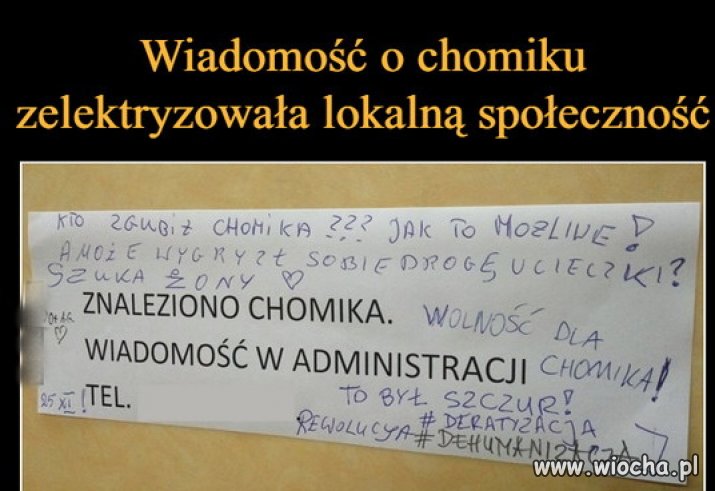 Wiadomość o chomiku
zelektryzowała lokalną społeczność
KTO ZGUBIŁ CHOMIKA ??? JAK TO MOŻLIWE!
A MOŻE WYGRYZŁ SOBIE DROGĘ UCIECZKI?
SZUKA ŻONY ♡
ZNALEZIONO CHOMIKA.
WOLNOŚĆ DLA
CHOMIKA!
WIADOMOŚĆ W ADMINISTRACJI
25 XI!
TEL.
TO BYŁ SZCZUR!
#DERATYZACJA
REWOLUCYJA #DEHUMANIZACJA
www.wiocha.pl